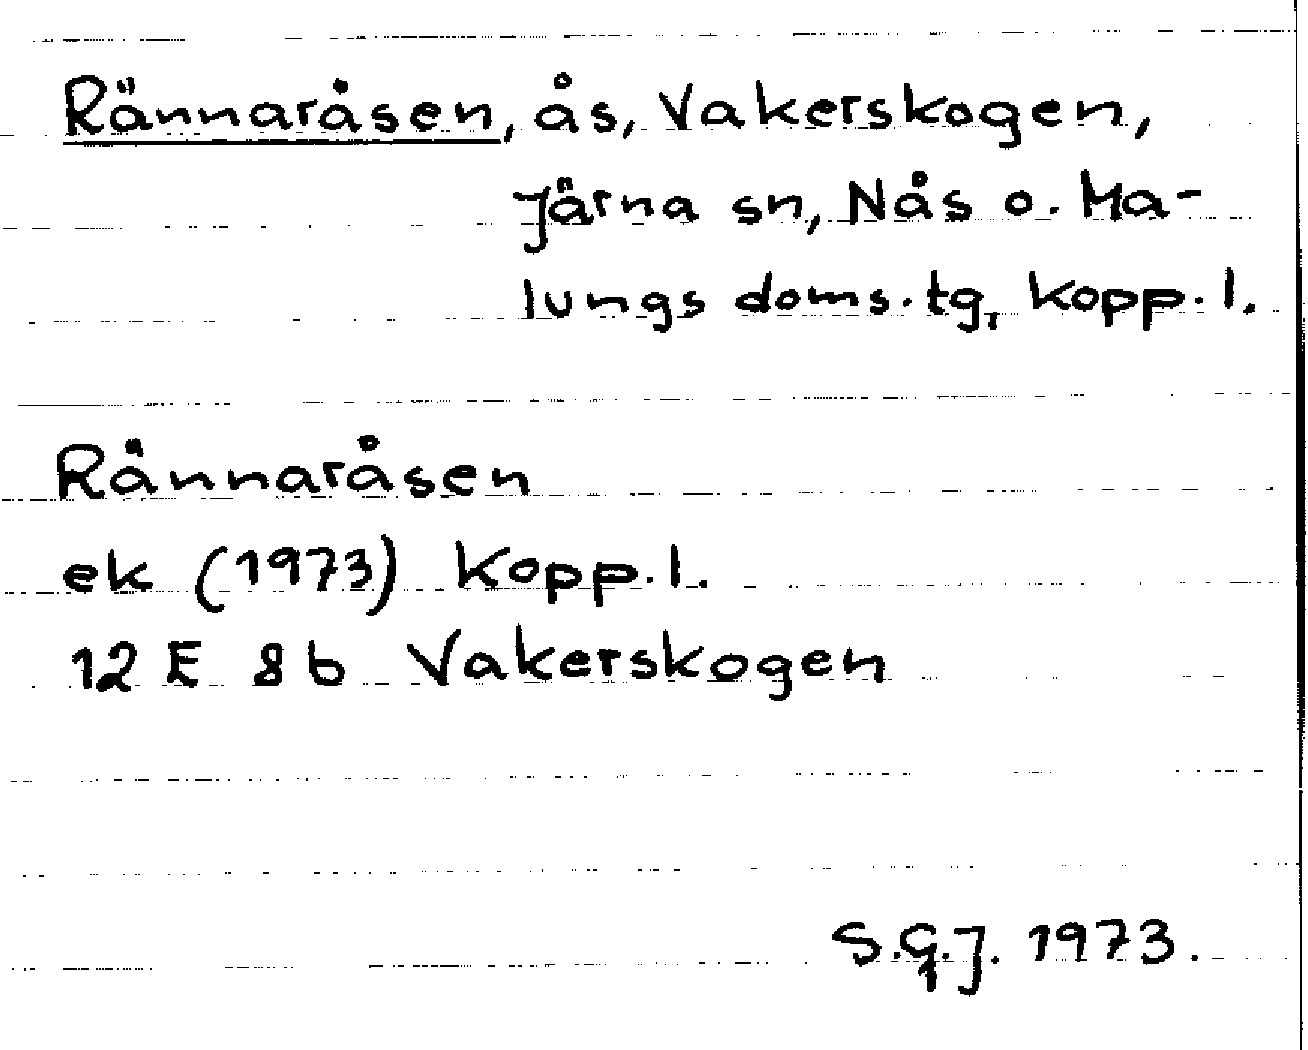 Rännaråsen, ås, Vakerskogen,
Järna sn, Nås o. Ma-
lungs doms.tg, Kopp.l.
Rännaråsen
ek (1973) Kopp.l.
12 E 8b Vakerskogen
S.G.J. 1973.